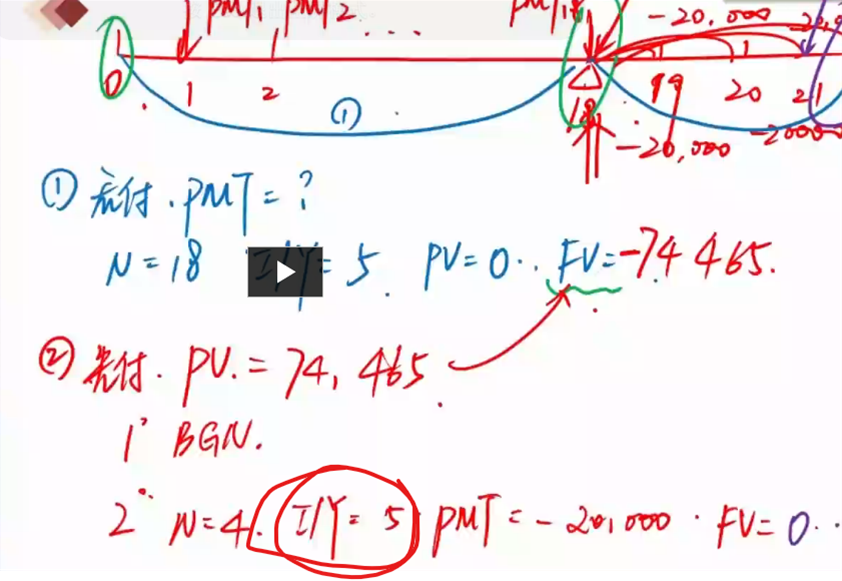 PMT₁ PMT₂ ... PMT₁₈ -20,000 -20,0
0 1 2 ① 18 19 20 21
-20,000 -20000
① 后付. PMT = ?
N = 18 I/Y = 5. PV = 0.. FV = -74 465.
② 先付. PV. = 74,465
1° BGN.
2° N=4. I/Y = 5 PMT = -20,000 . FV = 0..